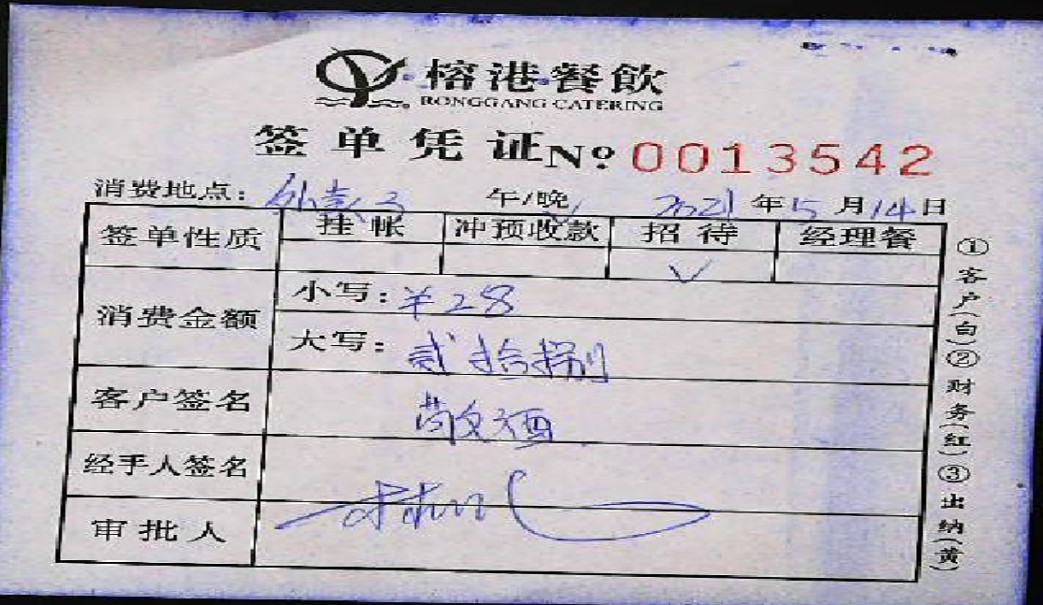 榕港餐飲
RONGGANG CATERING
签单凭证 № 0013542
消费地点: 外卖 午/晚 2021年5月14日
签单性质 挂帐 冲预收款 招待 经理餐
√
消费金额 小写: ¥28
大写: 贰拾捌
客户签名
经手人签名
审批人
①客户(白)②财务(红)③出纳(黄)